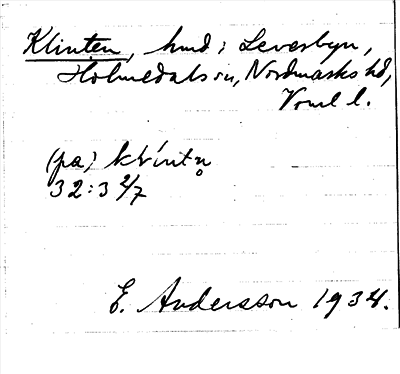 Klinten, hmd i Leverbyn,
Holmedals sn, Nordmarks hd,
Vrml l.
(pa) klintn̥
32:3 2/7
E. Andersson 1934.